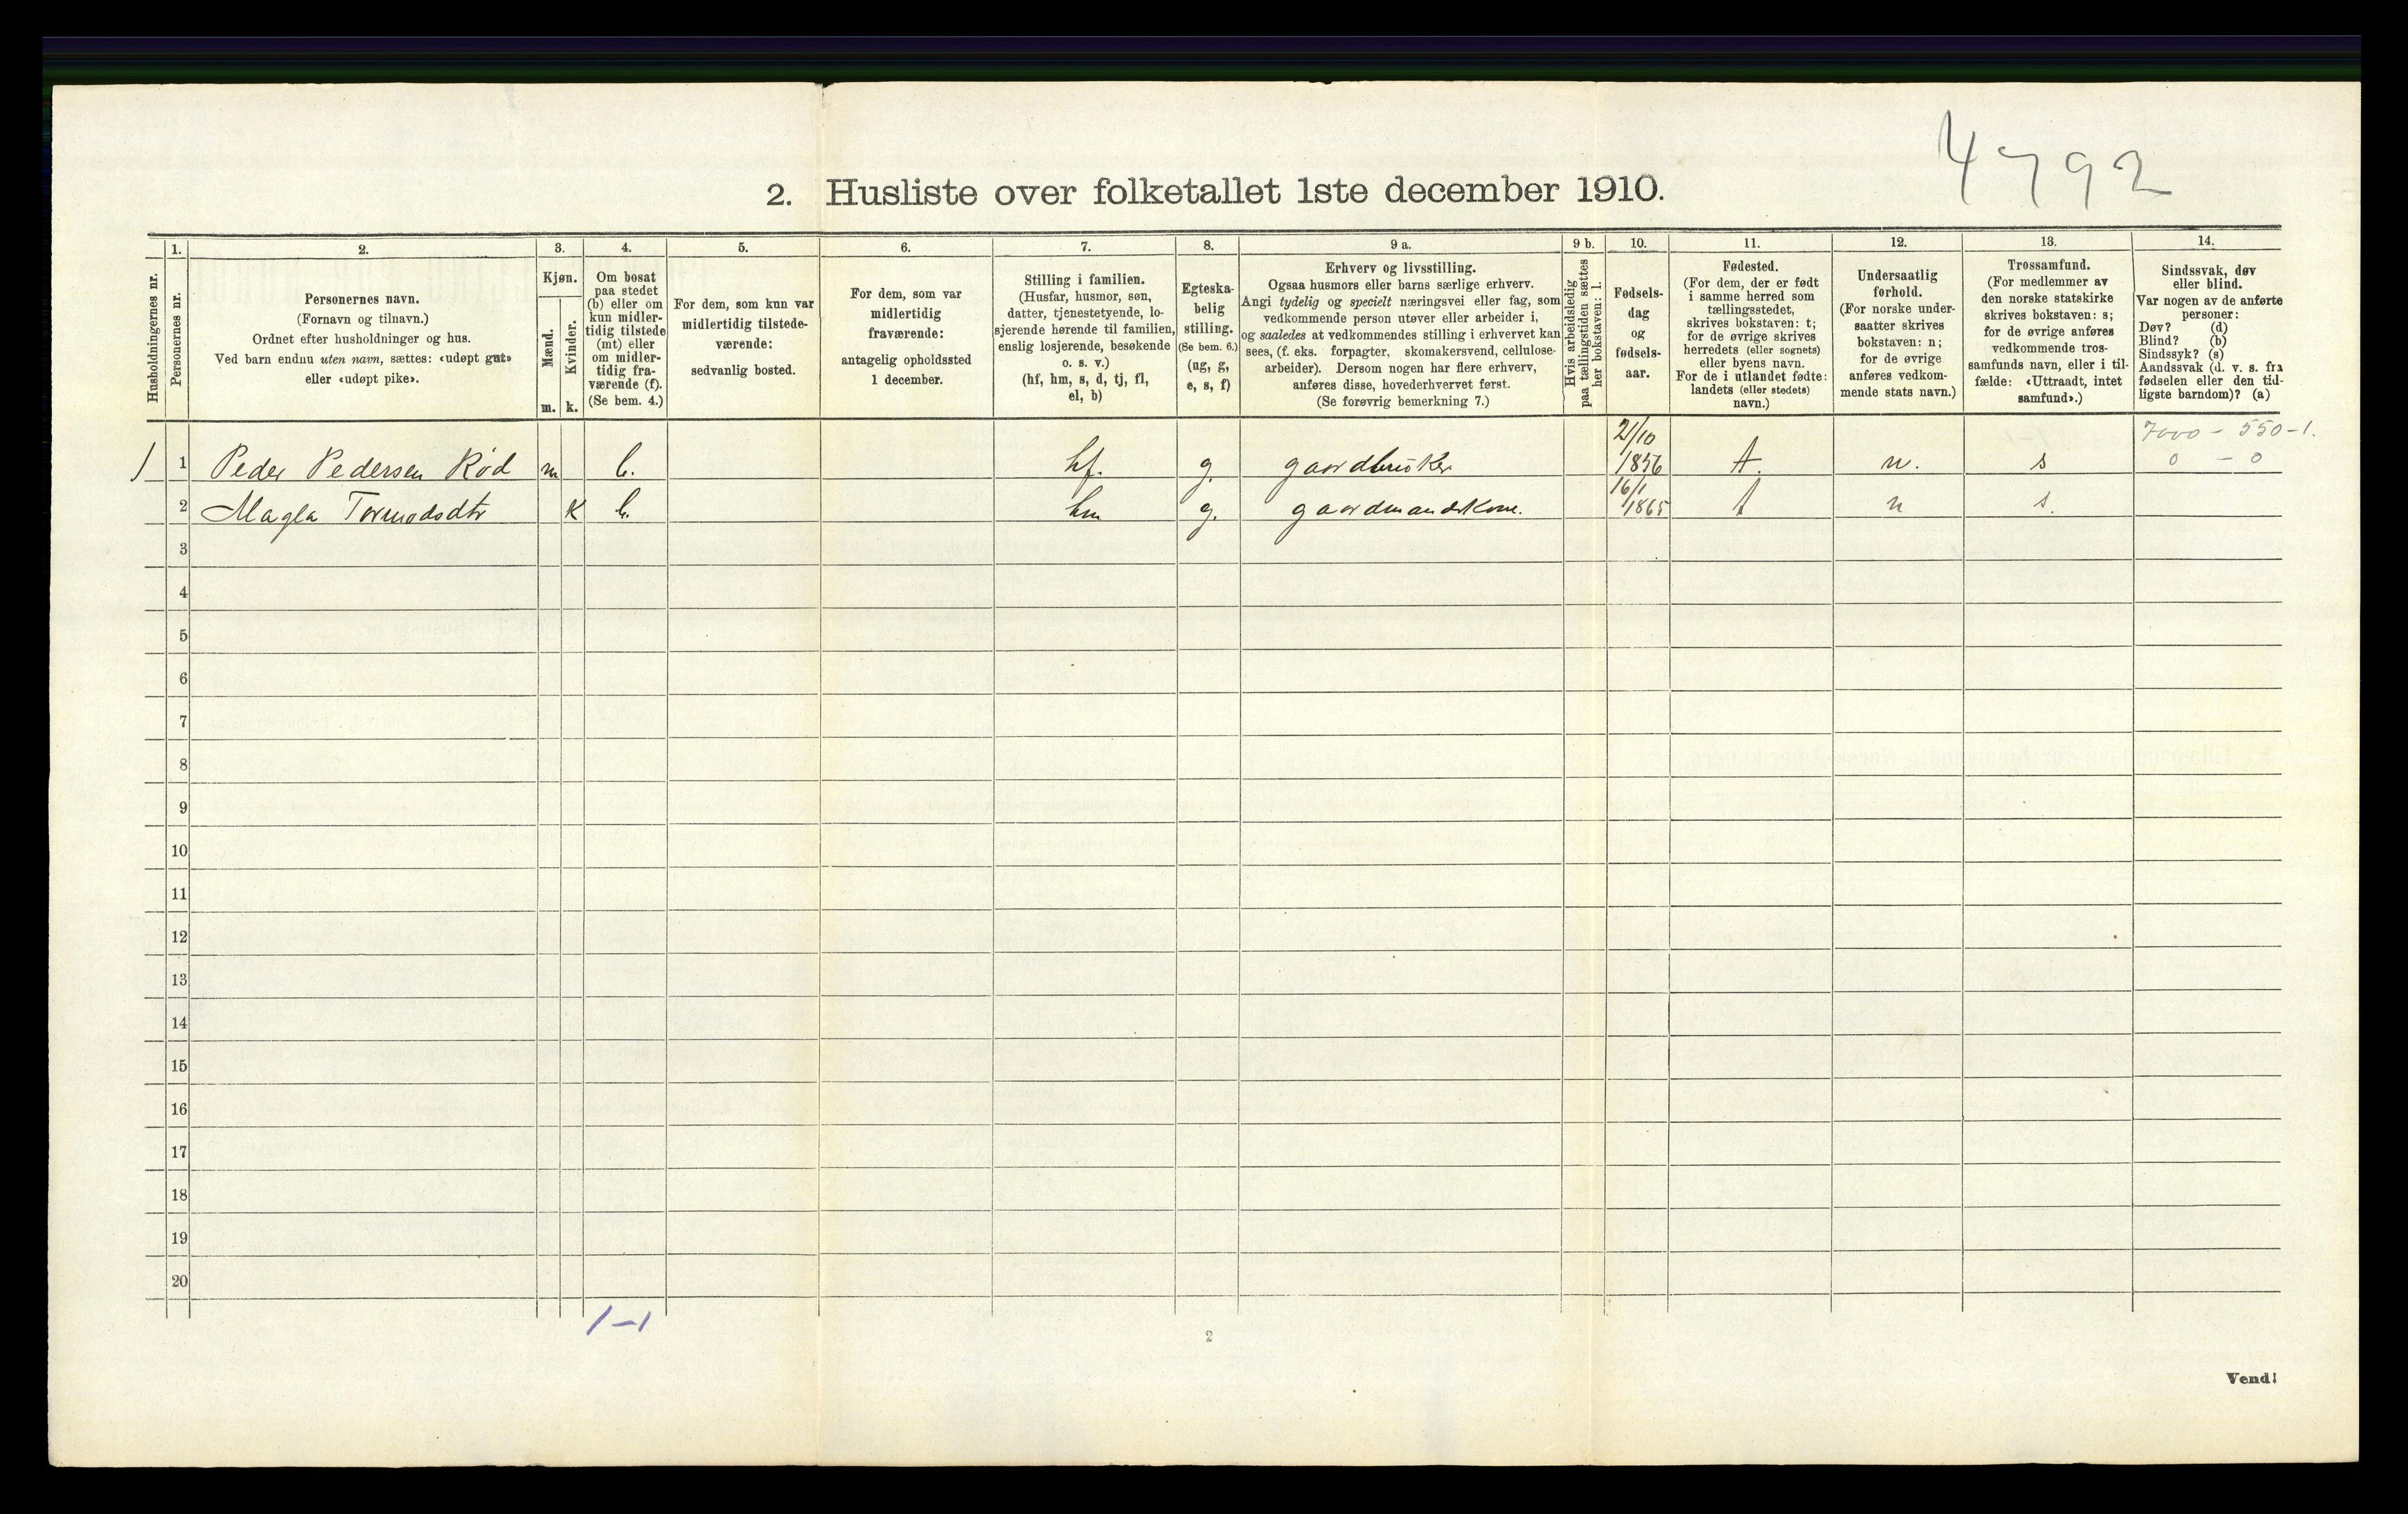 4792
2. Husliste over folketallet 1ste december 1910.
Husholdningernes nr.
1.
Personernes nr.
2.
Personernes navn.
(Fornavn og tilnavn.)
Ordnet efter husholdninger og hus.
Ved barn endnu uten navn, sættes: «udøpt gut»
eller «udøpt pike».
3.
Kjøn.
Mænd.
m.
Kvinder.
k.
4.
Om bosat
paa stedet
(b) eller om
kun midler-
tidig tilstede
(mt) eller
om midler-
tidig fra-
værende (f).
(Se bem. 4.)
5.
For dem, som kun var
midlertidig tilstede-
værende:
sedvanlig bosted.
6.
For dem, som var
midlertidig
fraværende:
antagelig opholdssted
1 december.
7.
Stilling i familien.
(Husfar, husmor, søn,
datter, tjenestetyende, lo-
sjerende hørende til familien,
enslig losjerende, besøkende
o. s. v.)
(hf, hm, s, d, tj, fl,
el, b)
8.
Egteska-
belig
stilling.
(Se bem. 6.)
(ug, g,
e, s, f)
9 a.
Erhverv og livsstilling.
Ogsaa husmors eller barns særlige erhverv.
Angi tydelig og specielt næringsvei eller fag, som
vedkommende person utøver eller arbeider i,
og saaledes at vedkommendes stilling i erhvervet kan
sees, (f. eks. forpagter, skomakersvend, cellulose-
arbeider). Dersom nogen har flere erhverv,
anføres disse, hovederhvervet først.
(Se forøvrig bemerkning 7.)
9 b.
Hvis arbeidsledig
paa tællingstiden sættes
her bokstaven: l.
10.
Fødsels-
dag
og
fødsels-
aar.
11.
Fødested.
(For dem, der er født
i samme herred som
tællingsstedet,
skrives bokstaven: t;
for de øvrige skrives
herredets (eller sognets)
eller byens navn.
For de i utlandet fødte:
landets (eller stedets)
navn.)
12.
Undersaatlig
forhold.
(For norske under-
saatter skrives
bokstaven: n;
for de øvrige
anføres vedkom-
mende stats navn.)
13.
Trossamfund.
(For medlemmer av
den norske statskirke
skrives bokstaven: s;
for de øvrige anføres
vedkommende tros-
samfunds navn, eller i til-
fælde: «Uttraadt, intet
samfund».)
14.
Sindssvak, døv
eller blind.
Var nogen av de anførte
personer:
Døv? (d)
Blind? (b)
Sindssyk? (s)
Aandssvak (d. v. s. fra
fødselen eller den tid-
ligste barndom)? (a)
7000 - 550-1.
1 1 Peder Pedersen Rød m b. hf. g. gaardbruker 21/10 1856 t. n. s 0 - 0
2 Magla Tormodsdtr K b. hm g. gaardmandskone. 16/1 1865 t n s.
3
4
5
6
7
8
9
10
11
12
13
14
15
16
17
18
19
20
1-1
2
Vend!